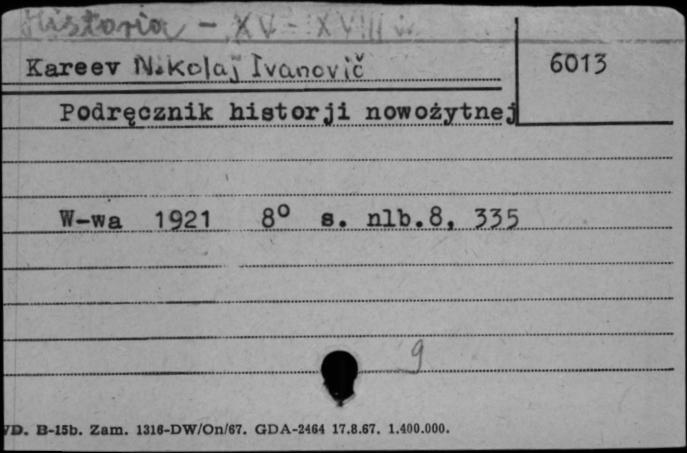 Historia - XV - XVIII w.
Kareev Nikolaj Ivanovič
6013
Podręcznik historji nowożytnej
W-wa 1921 8° s. nlb.8, 335
9
VD. B-15b. Zam. 1316-DW/On/67. GDA-2464 17.8.67. 1.400.000.